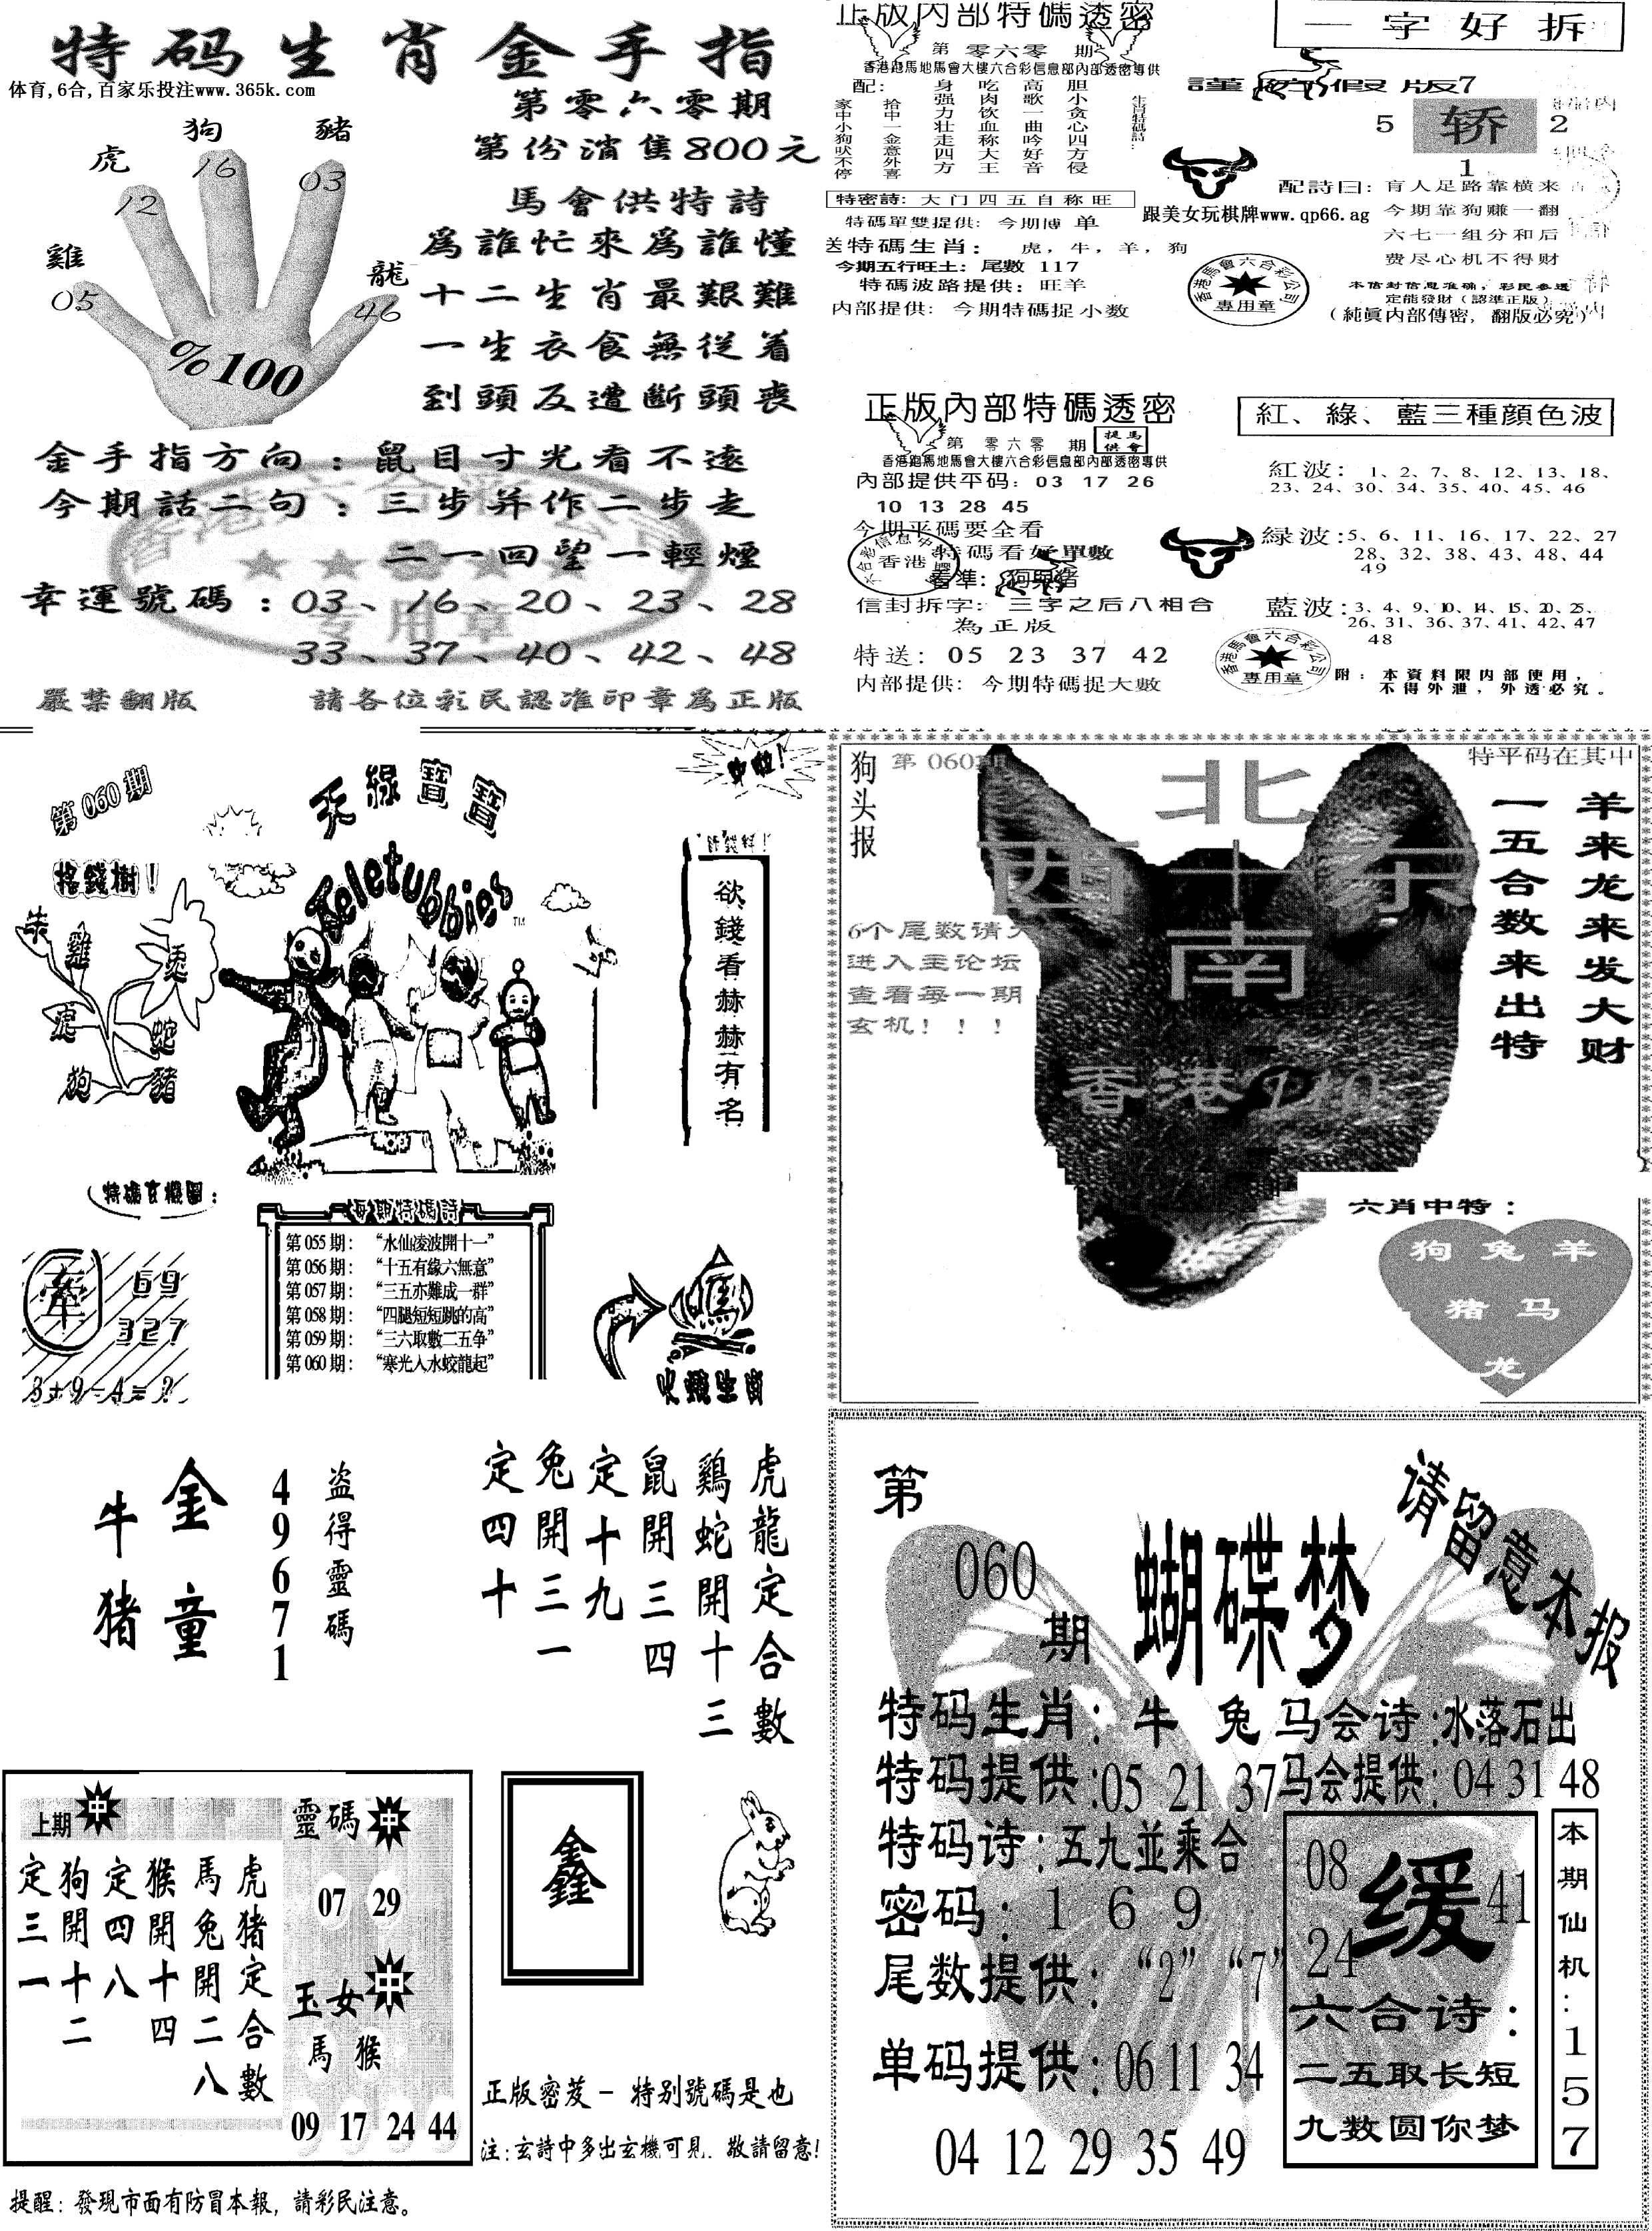 特码生肖金手指
体育,6合,百家乐投注www.365k.com
第零六零期
第份消售800元
雞
虎
狗
豬
龍
05
12
16
03
46
%100
馬會供特詩
為誰忙來為誰懂
十二生肖最艱難
一生衣食無從着
到頭反遭斷頭喪
金手指方向：鼠目寸光看不遠
今期話二句：三步并作二步走
二一回望一輕煙
幸運號碼：03、16、20、23、28
33、37、40、42、48
专用章
嚴禁翻版
請各位彩民認准印章為正版
正版内部特碼透密
第 零六零 期
香港跑馬地馬會大樓六合彩信息部內部透密專供
配：
胆小贪心四方侵
高歌一曲吟好音
吃肉饮血称大王
身强力壮走四方
拾中一金意外喜
家中小狗吠不停
特密詩：大门四五自称旺
特碼單雙提供：今期博 单
送特碼生肖： 虎，牛，羊，狗
今期五行旺土：尾數 117
特碼波路提供：旺羊
内部提供：今期特碼捉小数
一字好拆
謹防假版7
5
轿
2
1
配詩曰：
盲人足路靠横来
今期靠狗赚一翻
六七一组分和后
费尽心机不得财
跟美女玩棋牌www.qp66.ag
香港馬會六合彩公司
專用章
本信封信息准确，彩民参透
定能發財（認準正版）
（純眞内部傳密，翻版必究）
正版內部特碼透密
第 零六零 期
馬會提供
香港跑馬地馬會大樓六合彩信息部內部透密專供
內部提供平码：03 17 26
10 13 28 45
今期平碼要全看
特碼看好單數
看準：狗與豬
香港
信封拆字：三字之后八相合
為正版
特送：05 23 37 42
内部提供：今期特碼捉大數
紅、綠、藍三種顔色波
紅波：1、2、7、8、12、13、18、
23、24、30、34、35、40、45、46
緑波：5、6、11、16、17、22、27
28、32、38、43、48、44
49
藍波：3、4、9、10、14、15、20、25、
26、31、36、37、41、42、47
48
香港馬會六合彩公司
專用章
附：本資料限内部使用，
不得外泄，外透必究。
第060期
天線寶寶
Teletubbies
TM
搖錢樹！
牛
雞
兎
虎
蛇
狗
豬
欲錢看赫赫有名
特碼玄機圖：
牽
69
327
3+9-4=?
每期特碼詩
第055期：“水仙凌波開十一”
第056期：“十五有緣六無意”
第057期：“三五亦難成一群”
第058期：“四腿短短跳的高”
第059期：“三六取數二五争”
第060期：“寒光入水蛟龍起”
火燒生肖
狗头报
第060期
特平码在其中
北
西十东
南
羊来龙来发大财
一五合数来出特
6个尾数请
进入主论坛
查看每一期
玄机！！！
香港
六肖中特：
狗 兔 羊
猪 马
龙
金童
牛猪
盗得靈碼
49671
虎龍定合數
鷄蛇開十三
鼠開三四
定十九
兔開三一
定四十
上期中
虎猪定合數
馬兔開二八
猴開十四
定四八
狗開十二
定三一
靈碼中
07 29
玉女中
馬猴
09 17 24 44
鑫
正版密茇－特别號碼是也
注：玄詩中多出玄機可見．敬請留意！
提醒：發現市面有防冒本報，請彩民注意。
第
060
期
蝴蝶梦
请留意本报
特码生肖：牛 兔
马会诗：水落石出
特码提供：05 21 37
马会提供：04 31 48
特码诗：五九並乘合
密码：1 6 9
尾数提供：“2” “7”
单码提供：06 11 34
04 12 29 35 49
08
缓
41
24
六合诗：
二五取长短
九数圆你梦
本期仙机：157